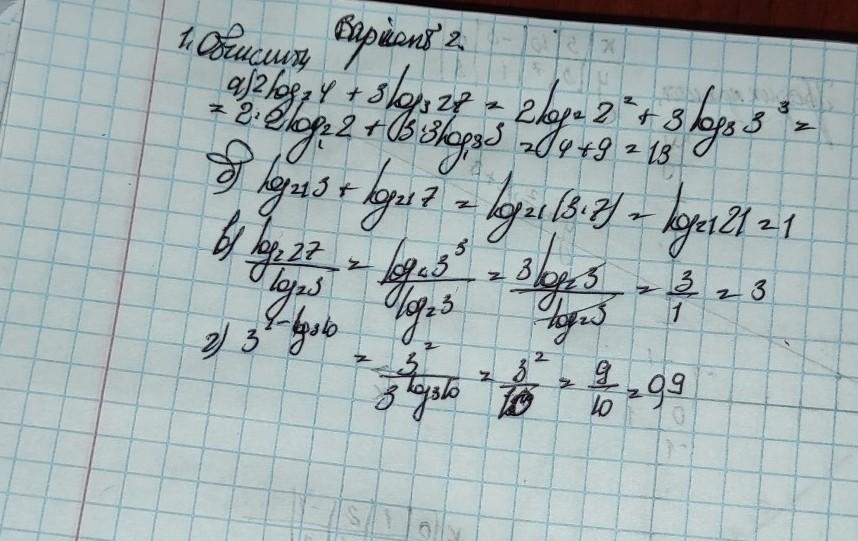 Варіант 2.
1. Обчислить
а) 2log₂4 + 3log₃27 = 2log₂2² + 3log₃3³ =
= 2·2log₂2 + 3·3log₃3 = 4+9 = 13
б) log₂₁3 + log₂₁7 = log₂₁(3·7) = log₂₁21 = 1
в) log₂27/log₂3 = log₂3³/log₂3 = 3log₂3/log₂3 = 3/1 = 3
г) 3^(2-log₃10) = 3²/3^(log₃10) = 3²/10 = 9/10 = 0,9